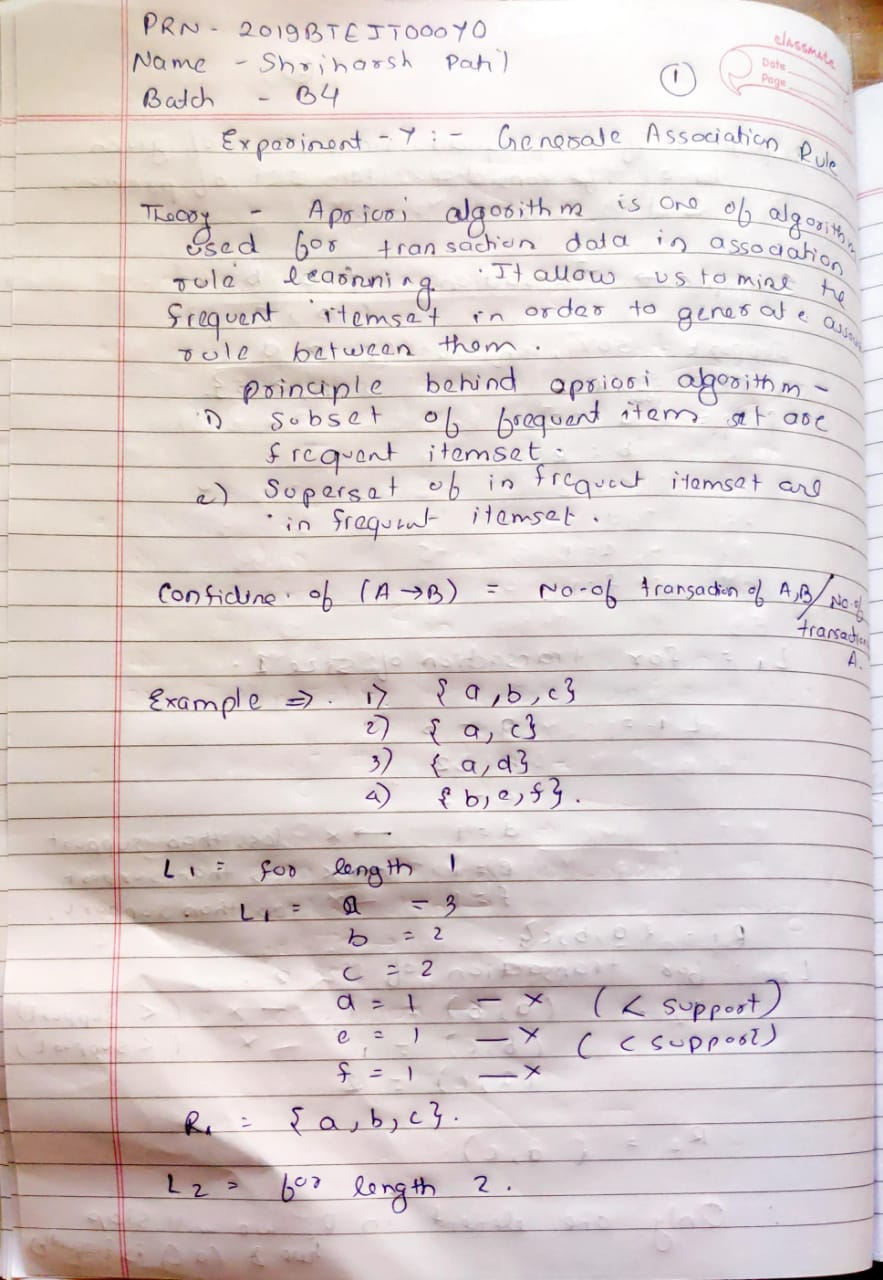 PRN - 2019BTEIT000Y0
Name - Shriharsh Patil
Batch - B4
1
classmate
Date
Page
Expariment - 7 : - Generate Association Rule
Theory - Apriori algorithm is one of algorithm
used for transaction data in association
rule learning. It allow us to mine the
frequent itemset in order to generate
rule between them.
principle behind apriori algorithm -
1) Subset of frequent item set are
frequent itemset.
2) Superset of in frequent itemset are
in frequent itemset.
of (A → B) = No-of transaction of A,B / No. of
transaction
A.
Example ⇒ 1) { a, b, c}
2) { a, c}
3) { a, d}
4) { b, e, f}.
L1 = for length 1
L1 = a = 3
b = 2
c = 2
d = 1 - × ( < support)
e = 1 - × ( < support)
f = 1 - ×
R1 = { a, b, c}.
L2 = for length 2.